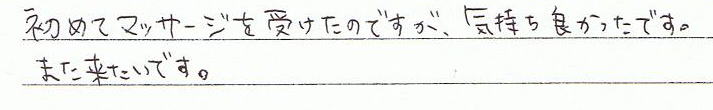 初めてマッサージを受けたのですが、気持ち良かったです。
また来たいです。